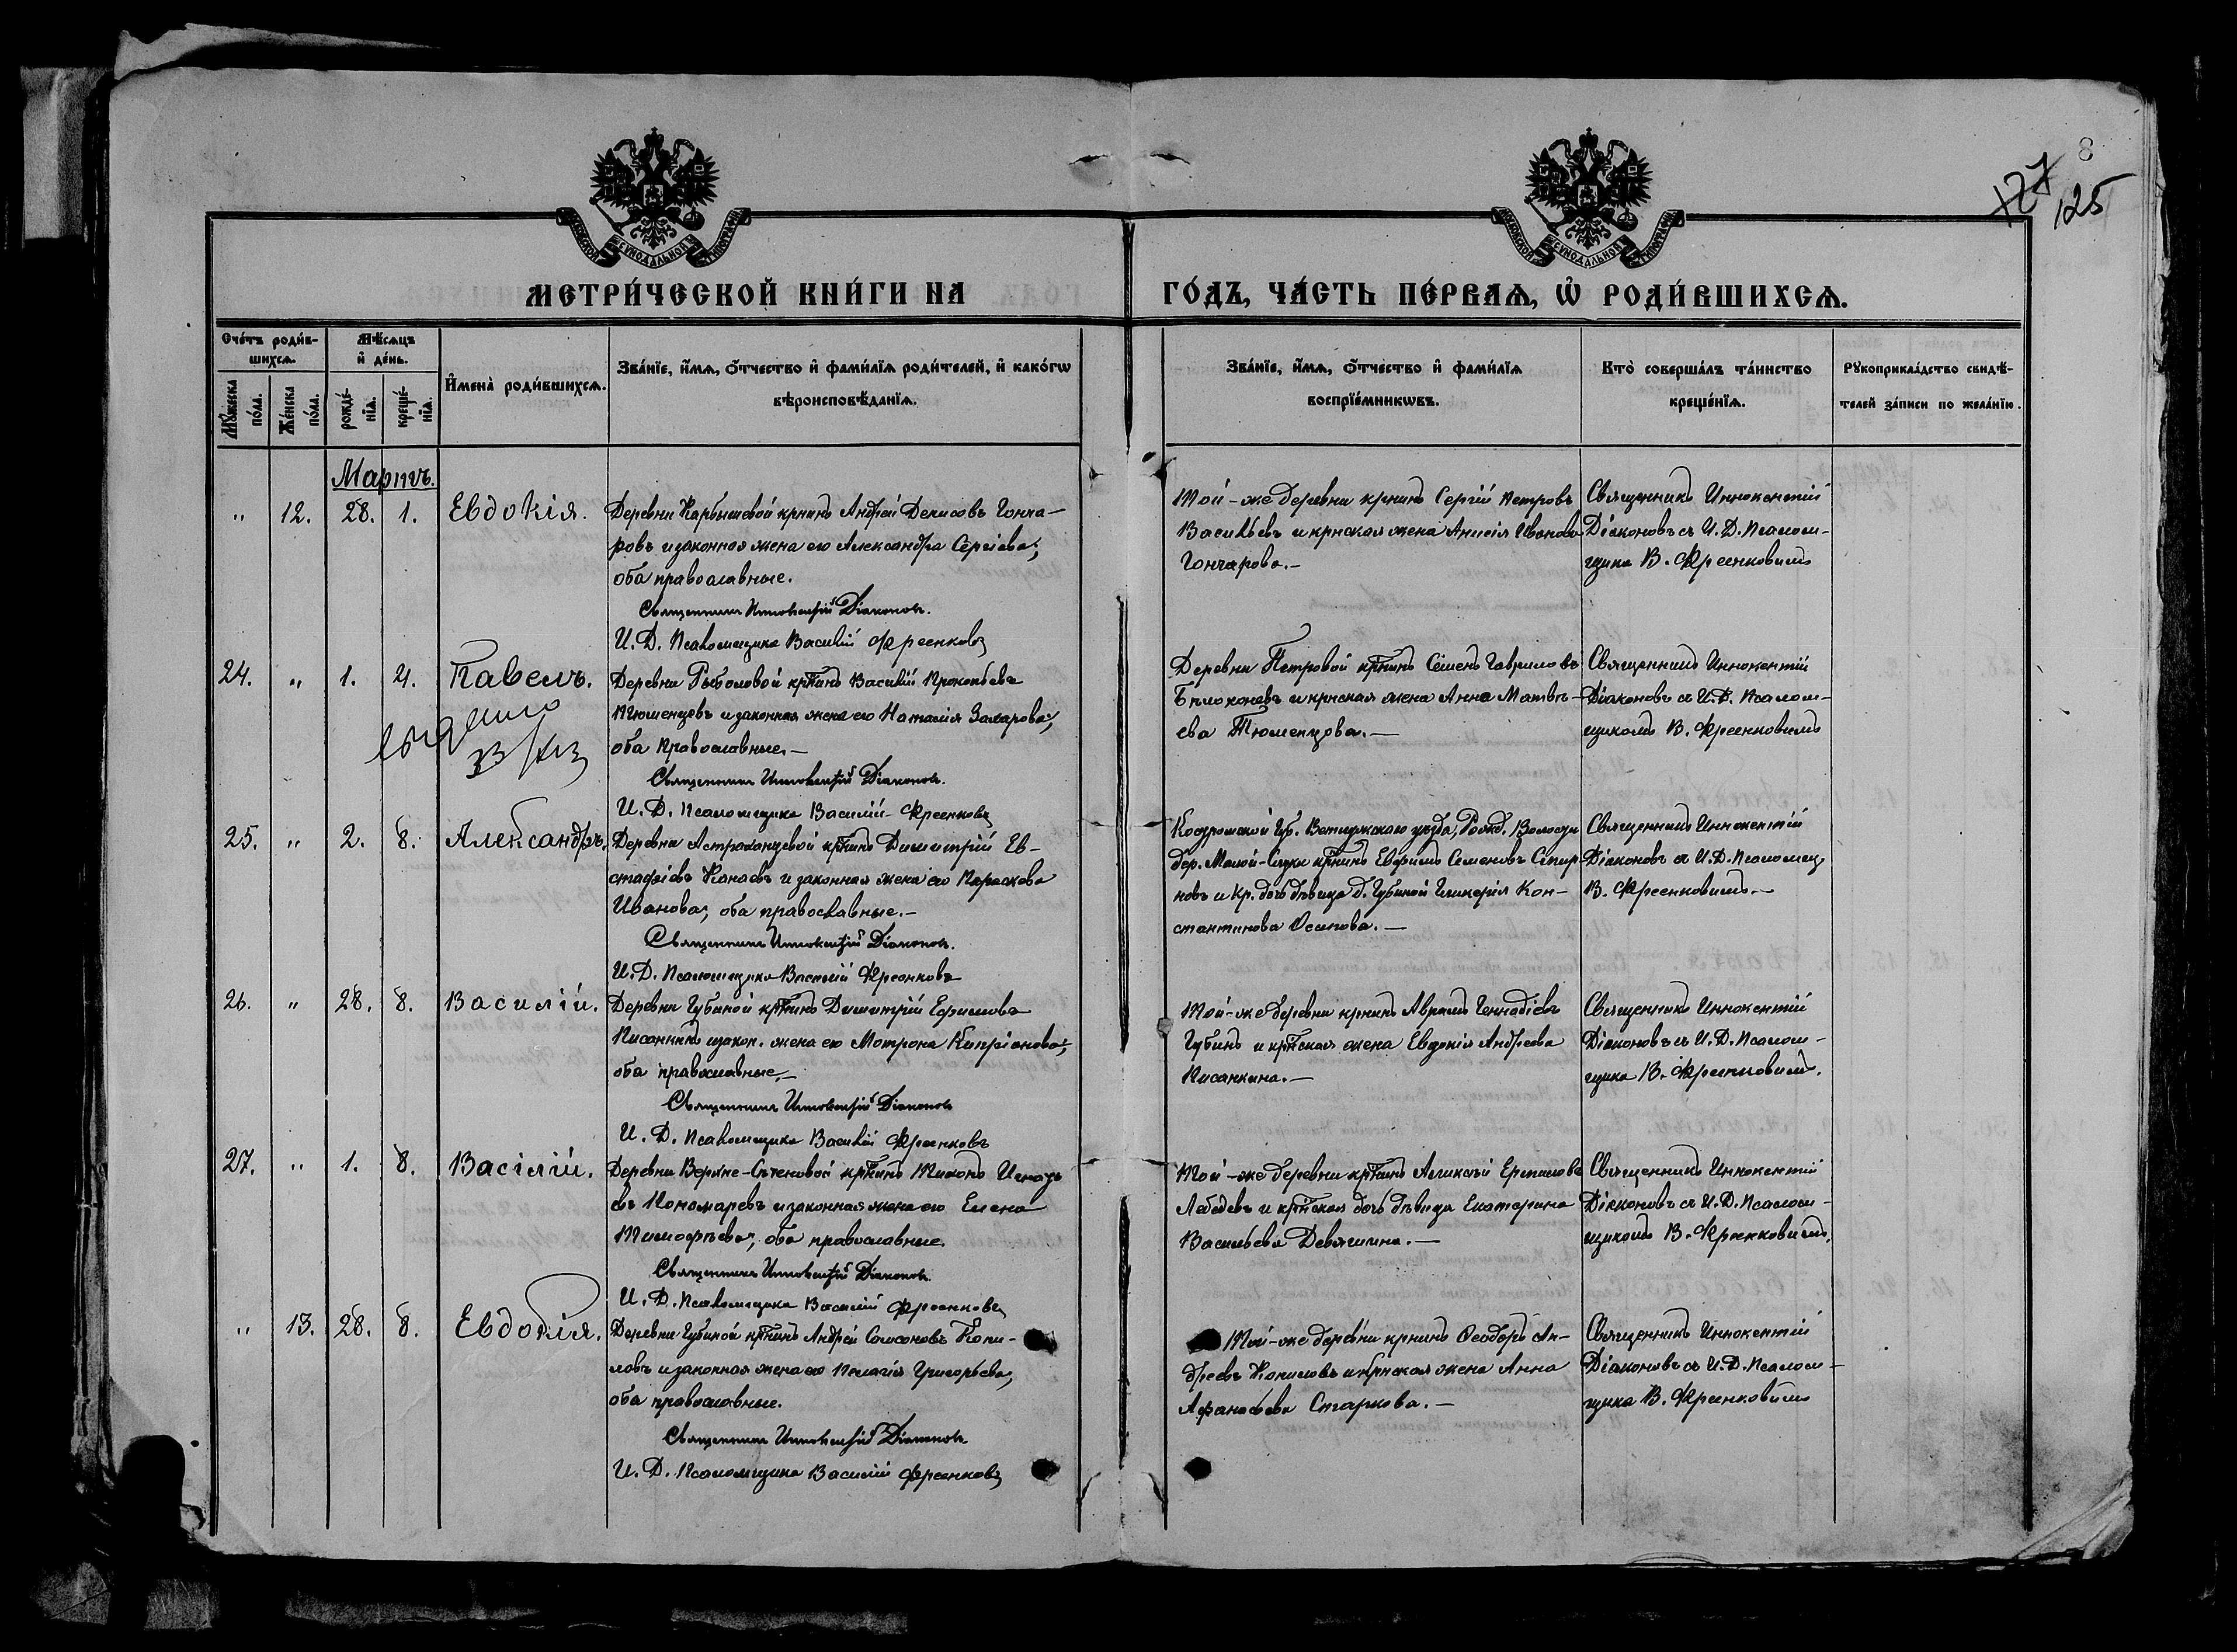 8
127 125
МЕТРИ́ЧЕСКОЙ КНИ́ГИ НА
ГО́ДЪ, ЧА́СТЬ ПЕ́РВАѦ, Ѡ҆ РОДИ́ВШИХСѦ.
Сче́тъ роди́в-
шихсѧ.
Мѣ́сѧцъ
и҆ де́нь.
Мꙋ́жеска
по́ла.
Же́нска
по́ла.
рожде́-
нїѧ.
креще́-
нїѧ.
И҆мена̀ роди́вшихсѧ.
Зва́нїе, и҆́мѧ, ѻ҆́тчество и҆ фами́лїѧ роди́телей, и҆ како́гѡ
вѣроисповѣ́данїѧ.
Зва́нїе, и҆́мѧ, ѻ҆́тчество и҆ фами́лїѧ
воспрїе́мникѡвъ.
Кто̀ соверша́лъ та́инство
креще́нїѧ.
Рꙋкоприкла́дство свидѣ́-
телей за́писи по жела́нїю.
Мартъ.
" 12. 28. 1. Евдокія.
Деревни Карбышевой крнинъ Андрей Денисовъ Гонча-
ровъ и законная жена его Александра Сергіева,
оба православные.
Священникъ Иннокентій Діаконовъ.
И. Д. Псаломщика Василій Фреенковъ
Той-же деревни крнинъ Сергій Петровъ
Васильевъ и крнская жена Анисія Иванова
Гончарова.-
Священникъ Иннокентій
Діаконовъ съ И. Д. Псалом-
щика В. Фреенковимъ
24. " 1. 4. Павелъ.
выдано
Деревни Рыболовой крнинъ Василій Прокопьевъ
Тюменцовъ и законная жена его Наталія Захарова,
оба Православные.-
Священникъ Иннокентій Діаконовъ.
И. Д. Псаломщика Василій Фреенковъ
Деревни Петровой крнинъ Семенъ Гавриловъ
Бѣлоконевъ и крнская жена Анна Матвѣ-
ева Тюменцова.-
Священникъ Иннокентій
Діаконовъ съ И. Д. Псалом-
щикомъ В. Фреенковимъ
25. " 2. 8. Александръ.
Деревни Астраханцевой крнинъ Димитрій Ев-
стафіевъ Канаевъ и законная жена его Параскева
Иванова, оба православные.-
Священникъ Иннокентій Діаконовъ.
И. Д. Псаломщика Василій Фреенковъ
Костромской Губ. Ветлужскаго уѣзда, Волости
дер. Малой- крнинъ Ефимъ Семеновъ
новъ и кр. дочь дѣвица д. Губиной Гликерія Кон-
стантинова Осипова.-
Священникъ Иннокентій
Діаконовъ съ И. Д. Псаломщ.
В. Фреенковимъ.-
26. " 28. 8. Василій.
Деревни Губиной крнинъ Димитрій Ефимовъ
Писанкинъ и закон. жена его Матрона Кипріанова,
оба православные.-
Священникъ Иннокентій Діаконовъ
И. Д. Псаломщика Василій Фреенковъ
Той-же деревни крнинъ Аврамъ Геннадіевъ
Губинъ и крнская жена Евдокія Андреева
Писанкина.-
Священникъ Иннокентій
Діаконовъ съ И. Д. Псалом-
щика В. Фреенковимъ.
27. " 1. 8. Васілій.
Деревни Верхне-Сѣченовой крнинъ Тихонъ Игнать
евъ Пономаревъ и законная жена его Елена
Тимофѣева, оба православные.
Священникъ Иннокентій Діаконовъ.
И. Д. Псаломщика Василій Фреенковъ
Той-же деревни крнинъ Алексѣй Ермиловъ
Лебедевъ и крнская дочь дѣвица Екатерина
Васильева Девяшина.-
Священникъ Иннокентій
Діаконовъ съ И. Д. Псалом-
щикомъ В. Фреенковимъ.
" 13. 28. 8. Евдокія.
Деревни Губиной крнинъ Андрей Самсоновъ Копи-
ловъ и законная жена его Пелагія Григорьева,
оба православные.
Священникъ Иннокентій Діаконовъ
И. Д. Псаломщика Василій Фреенковъ
Той-же деревни крнинъ Феодоръ Ан-
дреевъ Копиловъ и крнская жена Анна
Афанасьева Старкова.-
Священникъ Иннокентій
Діаконовъ съ И. Д. Псалом-
щика В. Фреенковимъ